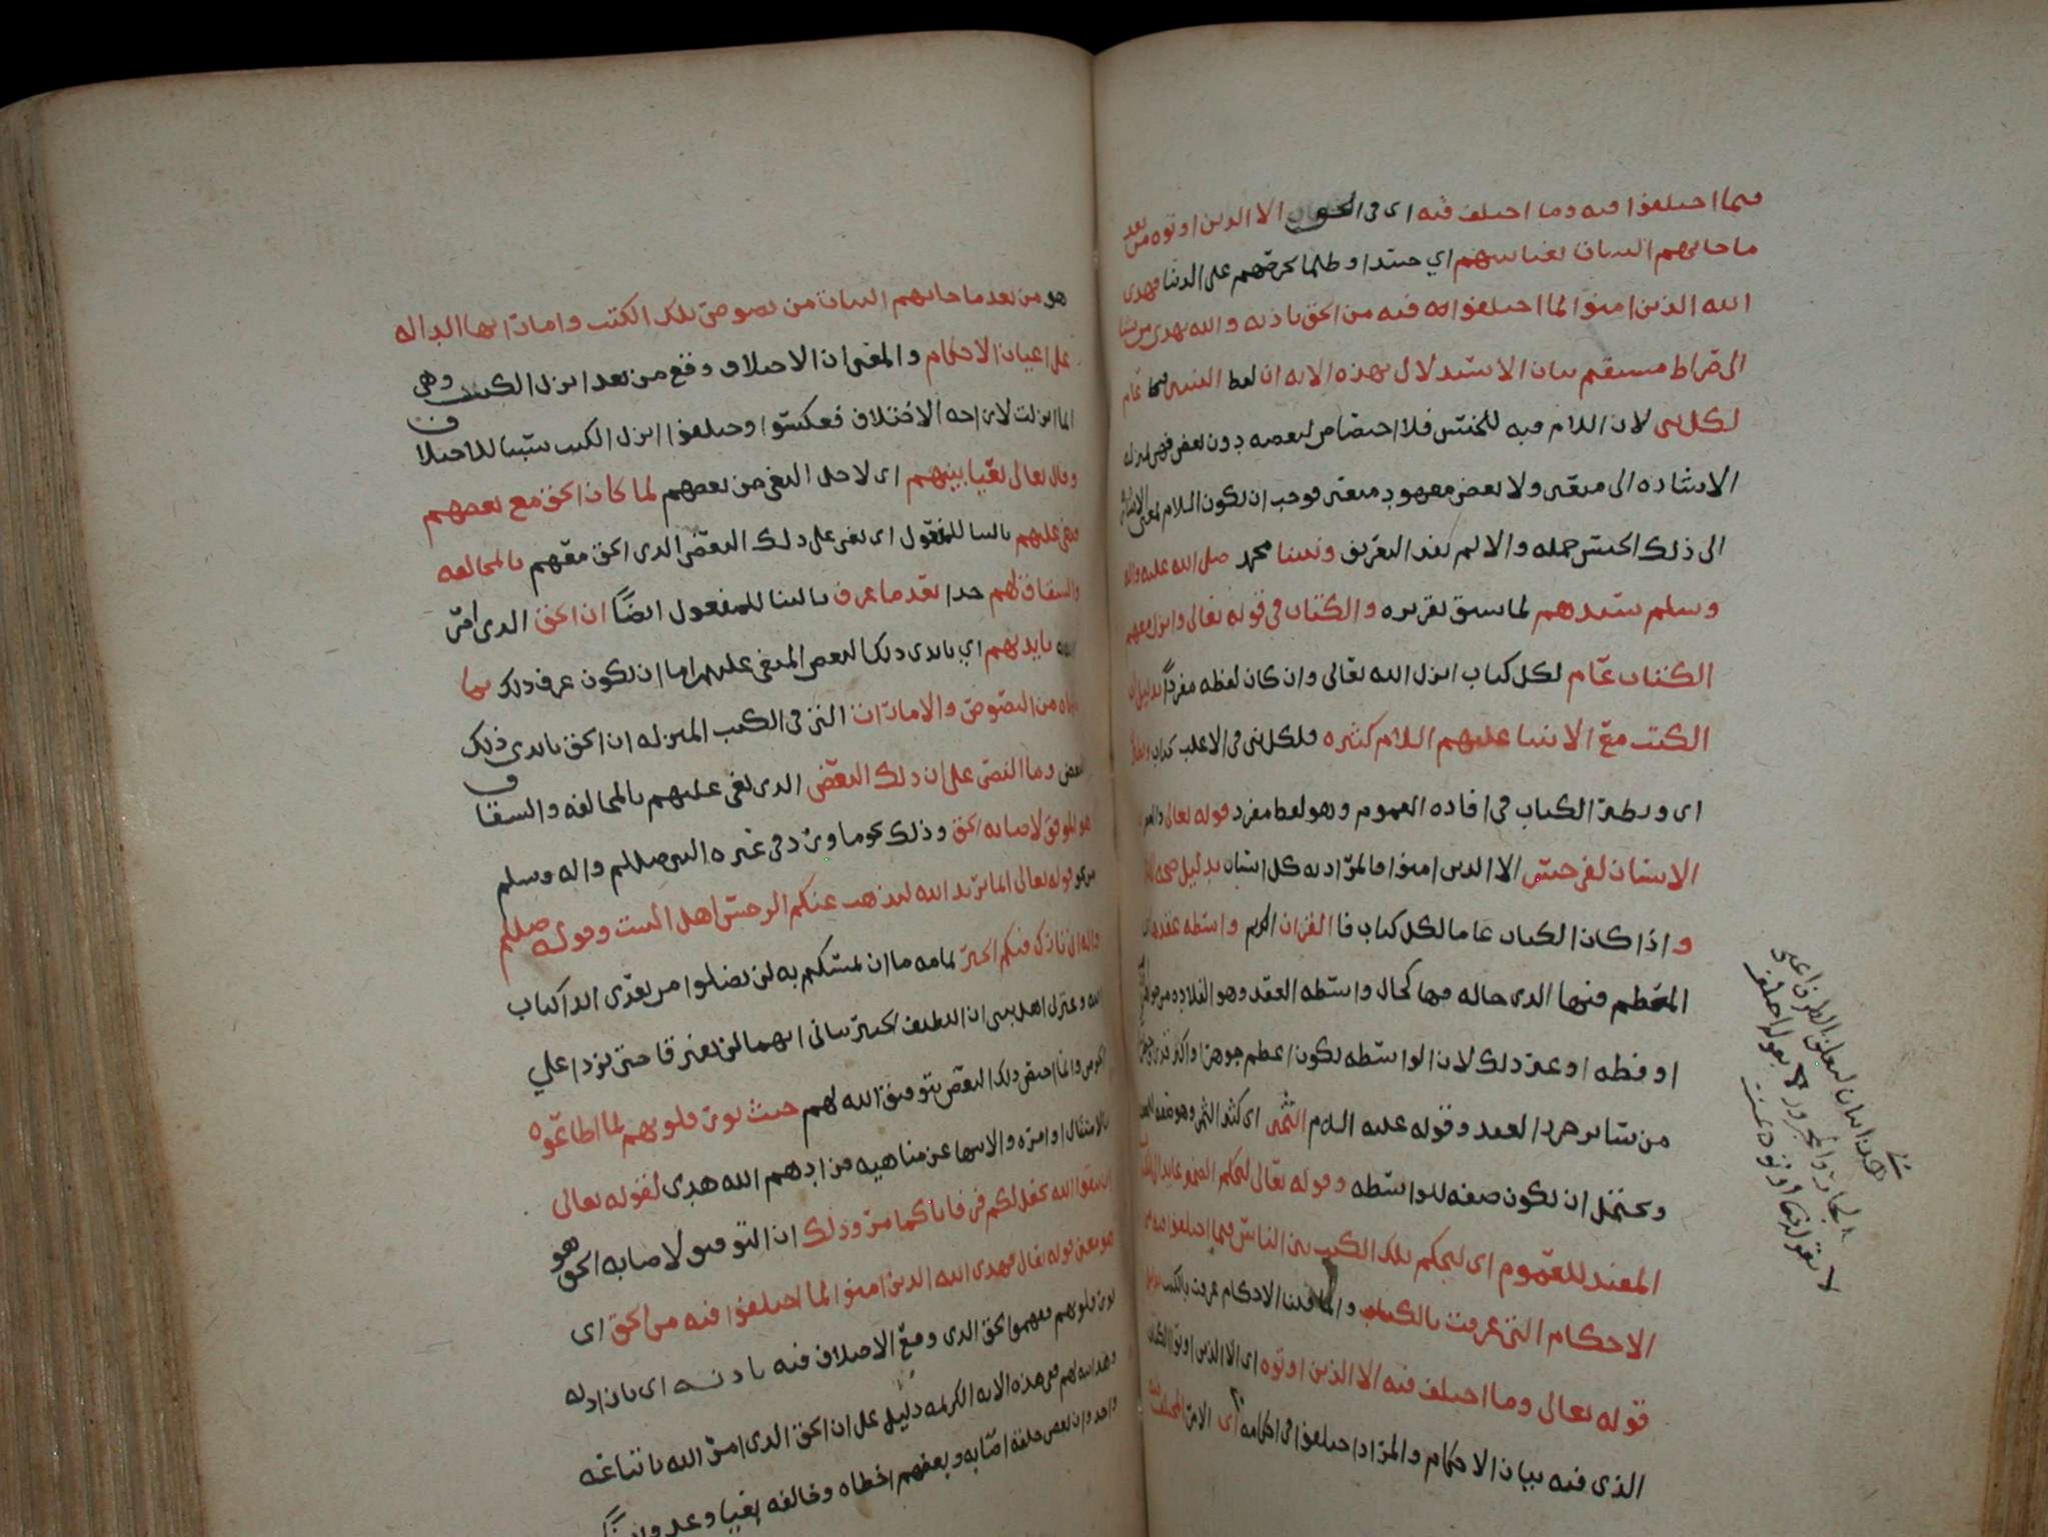 فيما اختلفوا فيه وما اختلف فيه اي في الا الذين اوتوه من بعد
ما جاتهم البينات بغيا بينهم اي حسدا وظلما لحرصهم على الدنيا فهدى
الله الذين امنوا لما اختلفوا فيه من الحق باذنه والله يهدي من يشا
الى صراط مستقيم بيان الاستدلال بهذه الايه ان لفظ النبيين عام
لكل نبي لان اللام فيه للجنس فلا اختصاص لبعضه دون بعض فهي لمنزله
الاشاره الى معين ولا بعض معهود معين فوجب ان تكون اللام لمعنى الاشاره
الى ذلك الجنس جمله والا لم يفد التعريف ونبينا محمد صلى الله عليه واله
وسلم سيدهم لما سبق تقريره والكتاب في قوله تعالى وانزل معهم
الكتاب عام لكل كتاب انزل الله تعالى وان كان لفظه مفردا بدليل ان
الكتب مع الانبيا عليهم السلام كثيره فلكل نبي في الاغلب كتاب
اي ونظير الكتاب في افاده العموم وهو لفظ مفرد قوله تعالى والعصر
الانسان لفي خسر الا الذين امنوا فالمراد به كل انسان بدليل صحه
واذا كان الكتاب عاما لكل كتاب فالقران الكريم واسطه عقدها
المعظم فيها الذي حاله فيها كحال واسطه العقد وهو القلاده من جوهر
او فضه او غير ذلك لان الواسطه تكون اعظم جوهرا واكثر
من سائر خرز العقد وقوله عليه السلام الثمين اي كثير الثمن وهو صفه
ويحتمل ان تكون صفه للواسطه وقوله تعالى ليحكم الضمير عايد الى
المفيد للعموم اي ليحكم تلك الكتب بين الناس فيما اختلفوا فيه
الاحكام التي عرفت بالكتاب وانما قلنا الاحكام عرفت بالكتب
قوله تعالى وما اختلف فيه الا الذين اوتوه اي الا الذين اوتوا الكتاب
الذي فيه بيان الاحكام والمراد اختلفوا في احكامه اي الامر المختلف فيه
هذا بيان لتعلق الظرف اعني
الجار والمجرور لا بقوله اختلف
لا بقوله اوتوه
هو من بعد ما جاتهم البينات من نصوص تلك الكتب واماراتها الداله
على اعيان الاحكام والمعنى ان الاختلاف وقع من بعد انزال الكتب وهي
انما انزلت لازاحه الاختلاف فعكسوا وجعلوا انزال الكتب سببا للاختلاف
وقال تعالى بغيا بينهم اي لاجل البغي من بعضهم لما كان الحق مع بعضهم
فبغي عليهم بالبنا للمفعول اي بغي على ذلك البعض الذي الحق معهم بالمخالفه
والشقاق لهم حدا بعد ما عرف بالبنا للمفعول ايضا ان الحق الذي امر
الله بايديهم اي بايدي ذلك البعض المبغي عليهم اما ان تكون عرف ذلك بما
من النصوص والامارات التي في الكتب المنزله ان الحق بايدي ذلك
البعض وما النص على ان ذلك البعض الذي بغي عليهم بالمخالفه والشقاق
هو الموفق لاصابه الحق وذلك نحو ما ورد في عتره النبي صللم واله وسلم
من نحو قوله تعالى انما يريد الله ليذهب عنكم الرجس اهل البيت وقوله صللم
واله اني تارك فيكم الخبر تمامه ما ان تمسكتم به لن تضلوا من بعدي ابدا كتاب
الله وعترتي اهل بيتي ان اللطيف الخبير نباني انهما لن يفترقا حتى يردا علي
الحوض وانما اختص ذلك البعض بتوفيق الله لهم حيث نور قلوبهم لما اطاعوه
بالامتثال اوامره والانتها عن مناهيه فزادهم الله هدى لقوله تعالى
ان تتقوا الله يجعل لكم فرقانا كما مر وذلك ان التوفيق لاصابه الحق هو
هو معنى قوله تعالى فهدى الله الذين امنوا لما اختلفوا فيه من الحق اي
نور قلوبهم ففهموا الحق الذي وقع الاختلاف فيه باذنه اي بان اذن له
وهذا الله لهم ففي هذه الايه الكريمه دليل على ان الحق الذي امر الله باتباعه
واحد وان بعض خلقه اصابه وبعضهم اخطاه وخالفه بغيا وعدوانا